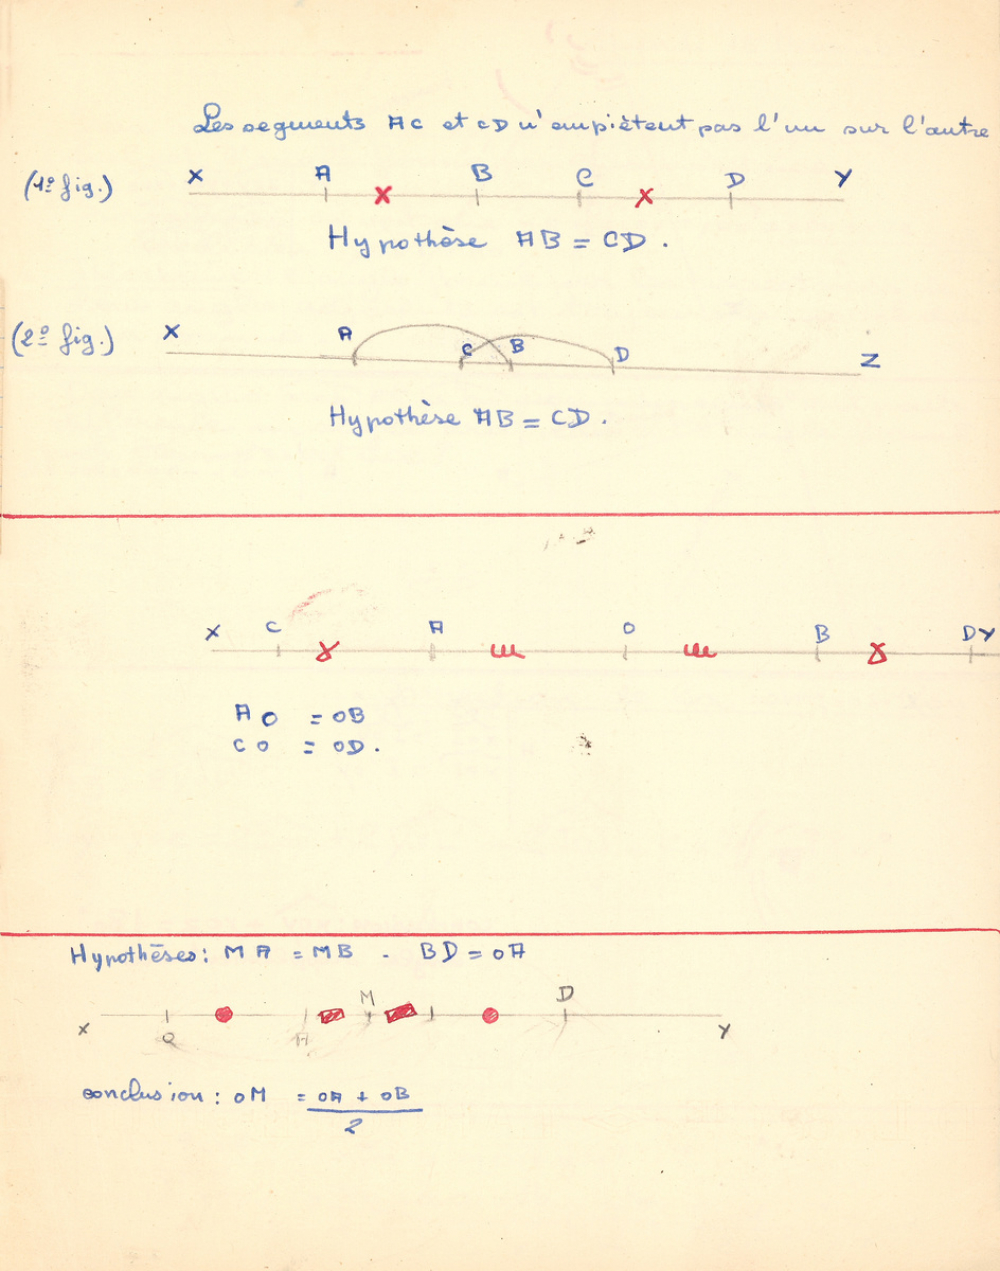 Les segments AC et CD n'empiètent pas l'un sur l'autre
(1º fig.) X A B C D Y
Hypothèse AB = CD.
(2º fig.) X A C B D Z
Hypothèse AB = CD.
X C A O B D Y
AO = OB
CO = OD.
Hypothèses: MA = MB . BD = OA
M D
X O A Y
conclusion: OM = OA + OB
2